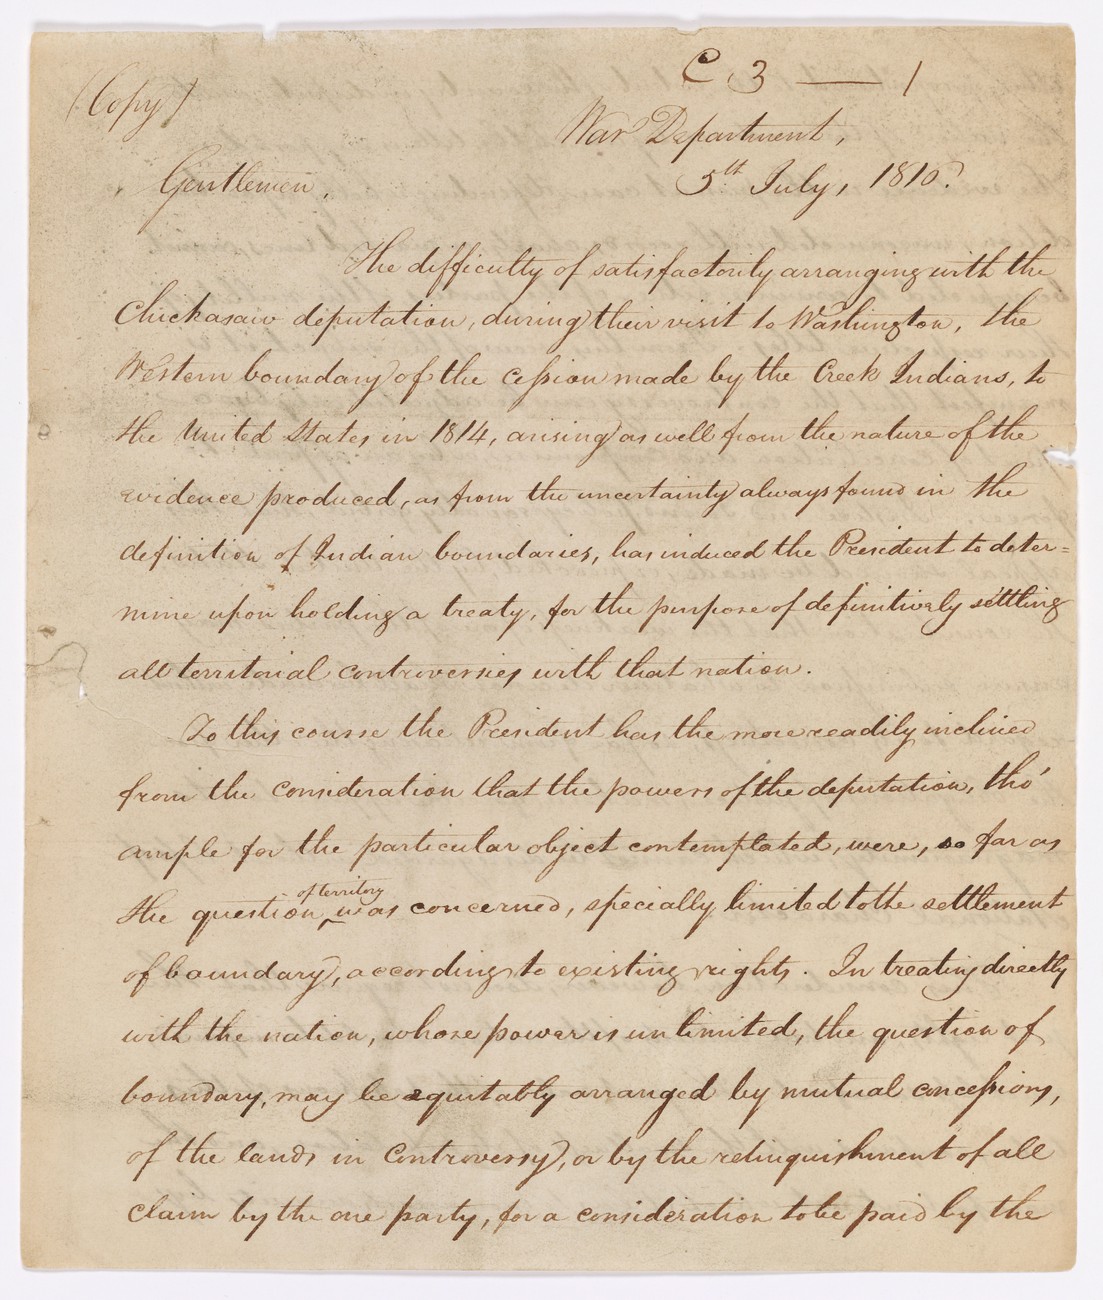 C 3 — 1
(Copy)
War Department,
5th July, 1816.
Gentlemen,
The difficulty of satisfactorily arranging with the
Chickasaw deputation, during their visit to Washington, the
Western boundary of the cession made by the Creek Indians, to
the United States in 1814, arising as well from the nature of the
evidence produced, as from the uncertainty always found in the
definition of Indian boundaries, has induced the President to deter=
mine upon holding a treaty, for the purpose of definitively settling
all territorial controversies with that nation.
To this course the President has the more readily inclined
from the consideration that the powers of the deputation, tho'
ample for the particular object contemplated, were, so far as
of territory
the question was concerned, specially limited to the settlement
of boundary, according to existing rights. In treating directly
with the nation, whose power is unlimited, the question of
boundary, may be equitably arranged by mutual concessions,
of the lands in controversy, or by the relinquishment of all
claim by the one party, for a consideration to be paid by the